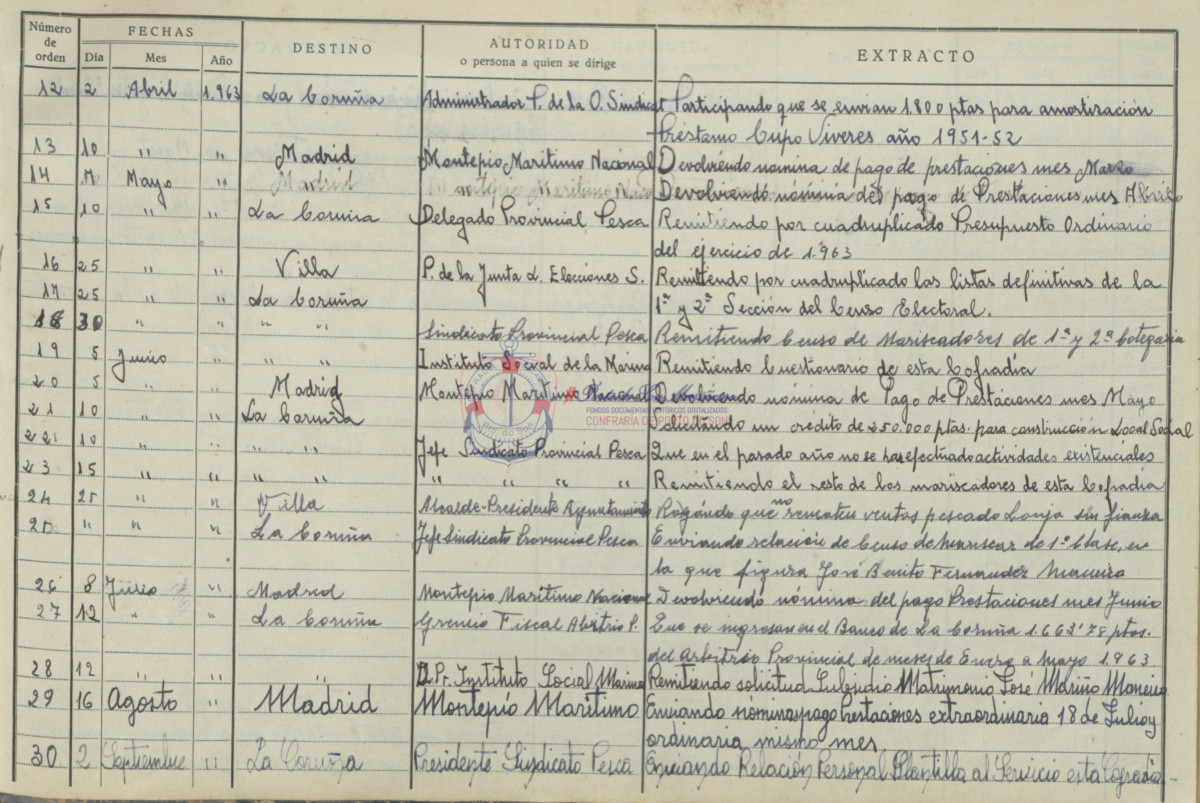 Número de orden FECHAS DESTINO AUTORIDAD EXTRACTO
Día Mes Año o persona a quien se dirige
12 2 Abril 1.963 La Coruña Administrador P. de la O. Sindical Participando que se envian 1.800 ptas para amortización
Préstamo Cupo Viveres año 1951-52
13 10 " " Madrid Montepio Maritimo Nacional Devolviendo nomina de pago de prestaciones mes Marzo
14 7 Mayo " Madrid Montepio Maritimo Devolviendo nómina del pago de Prestaciones mes Abril
15 10 " " La Coruña Delegado Provincial Pesca Remitiendo por cuadruplicado Presupuesto Ordinario
del ejercicio de 1.963
16 25 " " Villa P. de la Junta d. Elecciones S. Remitiendo por cuadruplicado las listas definitivas de la
17 25 " " La Coruña 1ª y 2ª Sección del Censo Electoral.
18 30 " " " " Sindicato Provincial Pesca Remitiendo Censo de Mariscadores de 1ª y 2ª Categoria
19 5 Junio " " " Instituto Social de la Marina Remitiendo Cuestionario de esta Cofradia
20 5 " " Madrid Montepio Maritimo Nacional Devolviendo nómina de Pago de Prestaciones mes Mayo
21 10 " " La Coruña Solicitando un crédito de 250.000 ptas. para construcción Local Social
22 10 " " " " Jefe Sindicato Provincial Pesca Que en el pasado año no se han efectuado actividades existenciales
23 15 " " " " " " " " Remitiendo el resto de los mariscadores de esta Cofradia
24 25 " " Villa Alcalde-Presidente Ayuntamiento Rogando que no rematen ventas pescado Lonja sin fianza
25 " " " La Coruña Jefe Sindicato Provincial Pesca Enviando relación de Censo de Mariscar de 1ª Clase, en
la que figura José Benito Fernandez Maneiro
26 8 Julio " Madrid Montepio Maritimo Nacional Devolviendo nómina del pago Prestaciones mes Junio
27 12 " " La Coruña Gremio Fiscal Abitrio P. Que se ingresan en el Banco de La Coruña 1.663'78 ptas.
del Arbitrio Provincial de meses de Enero a Mayo 1.963
28 12 " " " D. Pr. Instituto Social Marina Remitiendo solicitud Subsidio Matrimonio José Mariño Maneiro
29 16 Agosto " Madrid Montepío Maritimo Enviando nóminas pago Prestaciones extraordinaria 18 de Julio y
ordinaria mismo mes
30 2 Septiembre " La Coruña Presidente Sindicato Pesca Enviando Relación Personal Plantilla al Servicio esta Cofradía.
FONDOS DOCUMENTAIS HISTÓRICOS DIXITALIZADOS
CONFRARÍA DE PORTO DO SON